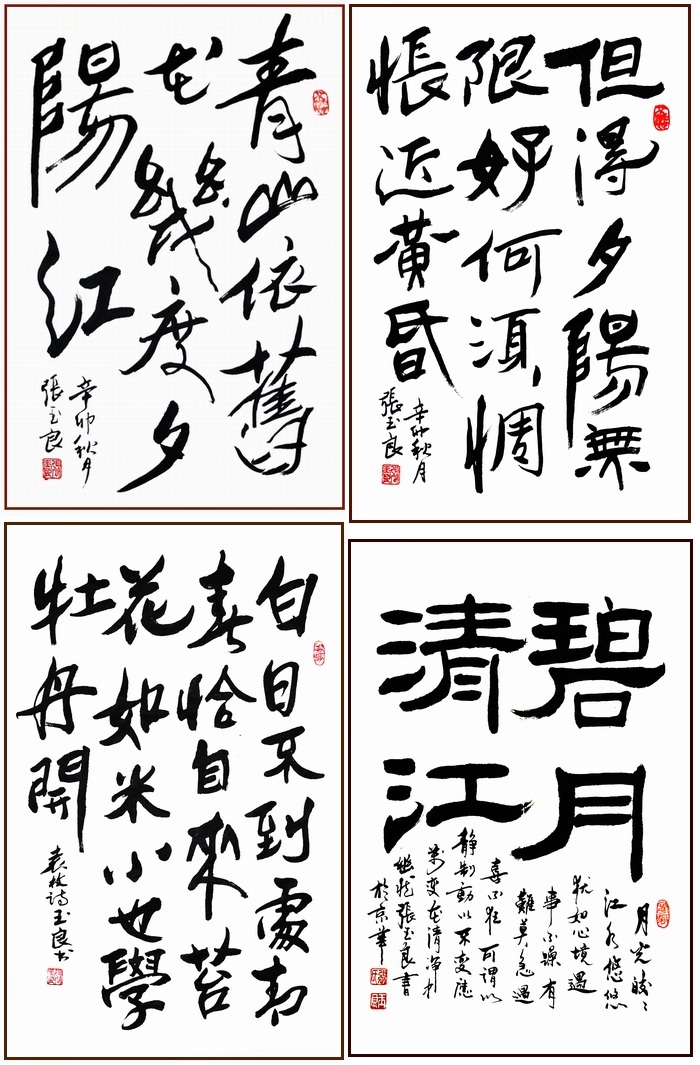 青山依舊
在幾度夕
陽紅
辛卯秋月
張玉良
但得夕陽無
限好何須惆
悵近黃昏
辛卯秋月
張玉良
白日不到處青
春恰自來苔
花如米小也學
牡丹開
袁枚詩玉良书
碧月
清江
月光皎〻
江水悠悠
犹如心境遇
事不躁有
難莫急遇
喜不狂可謂以
静制動以不变應
萬变在清净
張玉良書
於京華